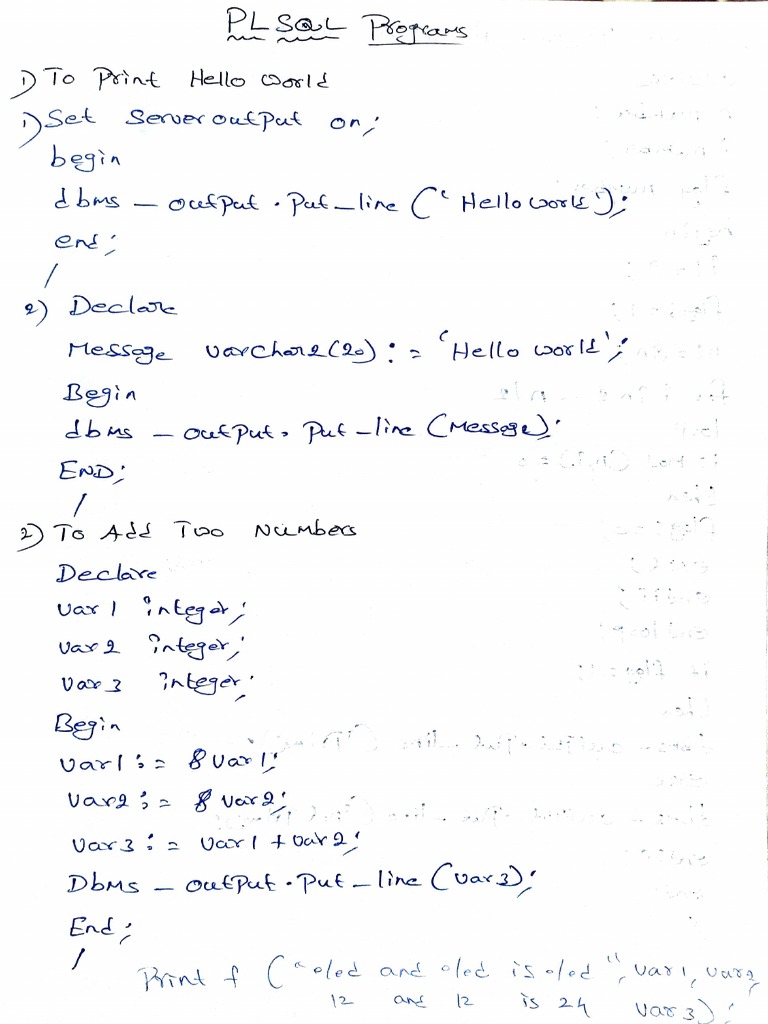 PL SQL Programs
1) To Print Hello world
1) Set Serveroutput on;
begin
dbms_output.Put_line ('Hello world');
end;
/
2) Declare
Message varchar2(20) := 'Hello world';
Begin
dbms_output.Put_line (Message);
END;
/
2) To Add Two Numbers
Declare
var1 integer;
var2 integer;
var3 integer;
Begin
var1 := &var1;
var2 := &var2;
var3 := var1 + var2;
Dbms_output.Put_line (var3);
End;
/
Print f ("%d and %d is %d", var1, var2,
12 and 12 is 24 var3);